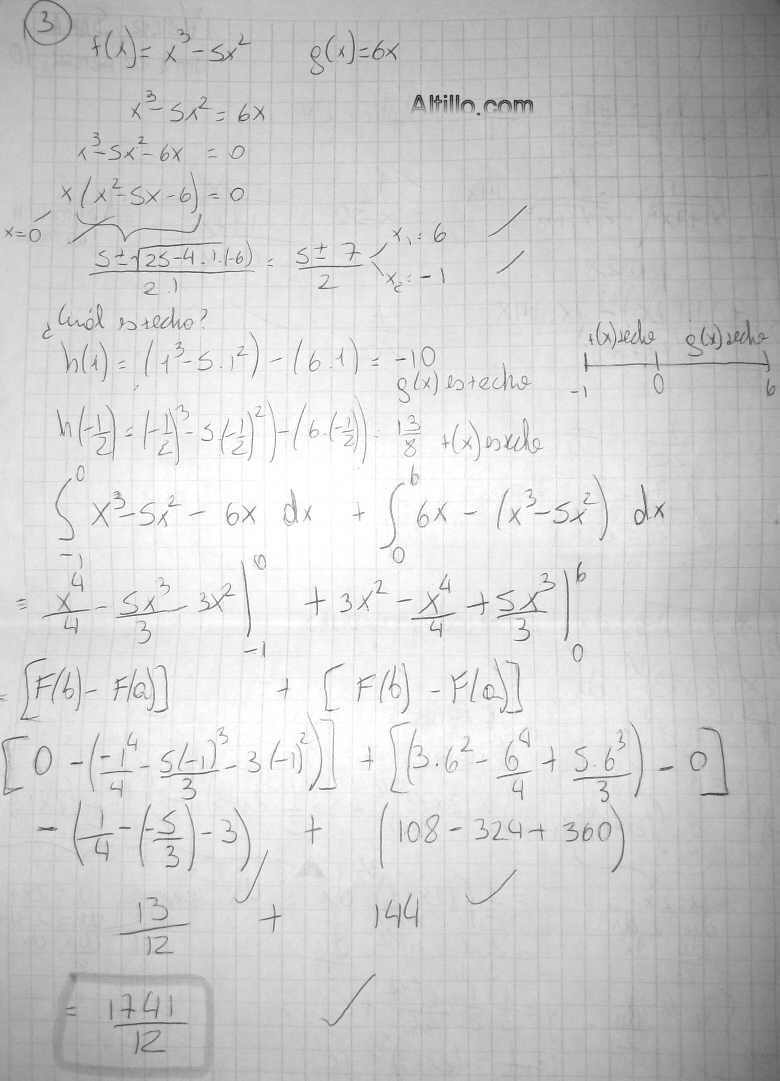 3
f(x)= x³-5x² g(x)=6x
Altillo.com
x³-5x² = 6x
x³-5x²-6x = 0
x(x²-5x-6)=0
x=0
5±√25-4.1.(-6) / 2.1 = 5±7 / 2 x₁=6 x₂=-1
¿Cuál es techo?
f(x) techo g(x) techo
-1 0 6
h(1) = (1³-5.1²)-(6.1) = -10
g(x) es techo
h(-1/2) = (-1/2)³-5(-1/2)²)-(6.(-1/2)) = 13/8 f(x) es techo
∫₋₁⁰ x³-5x²-6x dx + ∫₀⁶ 6x-(x³-5x²) dx
= x⁴/4 - 5x³/3 - 3x² |₋₁⁰ + 3x² - x⁴/4 + 5x³/3 |₀⁶
= [F(b)-F(a)] + [F(b)-F(a)]
[0-(-1⁴/4 - 5(-1)³/3 - 3(-1)²)] + [(3.6² - 6⁴/4 + 5.6³/3) - 0]
-(1/4-(-5/3)-3) + (108-324+360)
13/12 + 144
= 1741/12